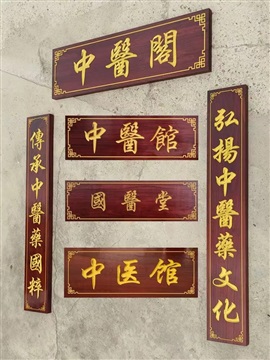 中醫閣
傳承中醫藥國粹
中醫館
國醫堂
中医馆
弘揚中醫藥文化